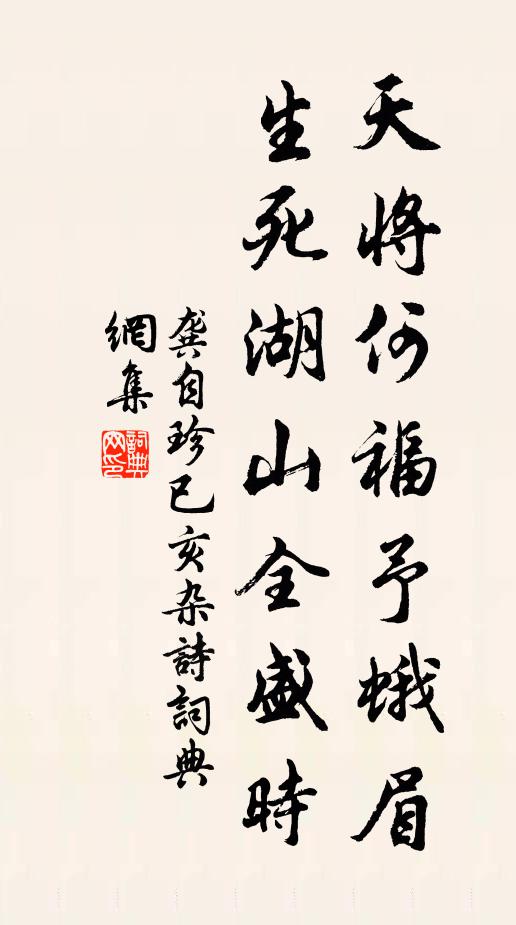 天將何福予蛾眉
生死湖山全盛時
龔自珍已亥杂詩詞典
網集
詞典
网印